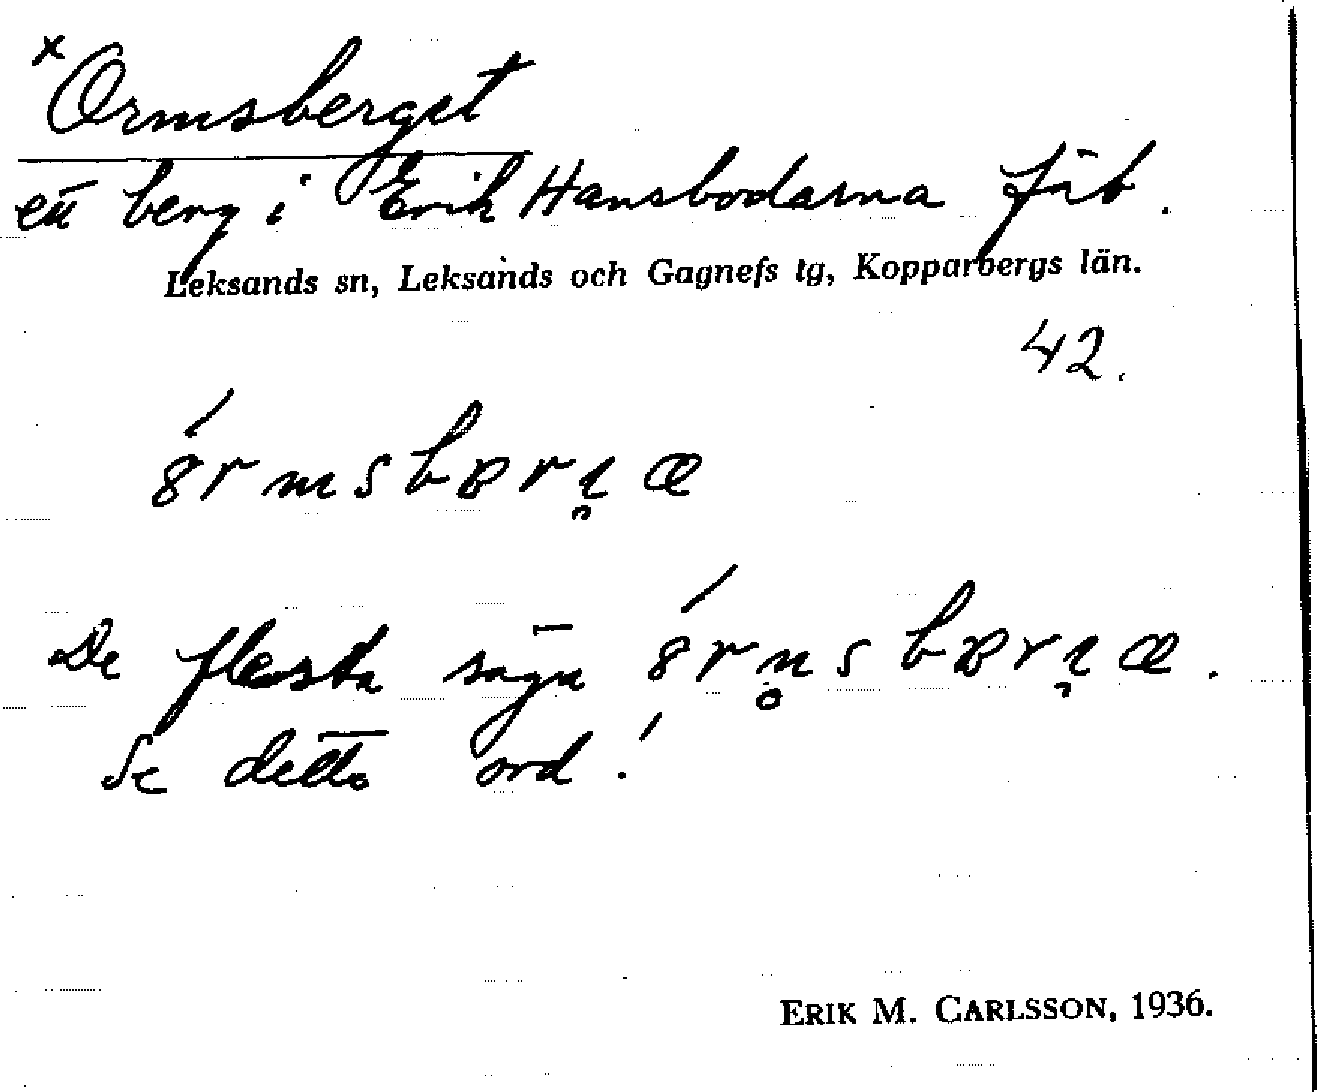 ×Ormsberget
ett berg i Erik Hansbodarna fäb.
Leksands sn, Leksands och Gagnefs tg, Kopparbergs län.
42.
De flesta säga
Se detta ord!
ERIK M. CARLSSON, 1936.